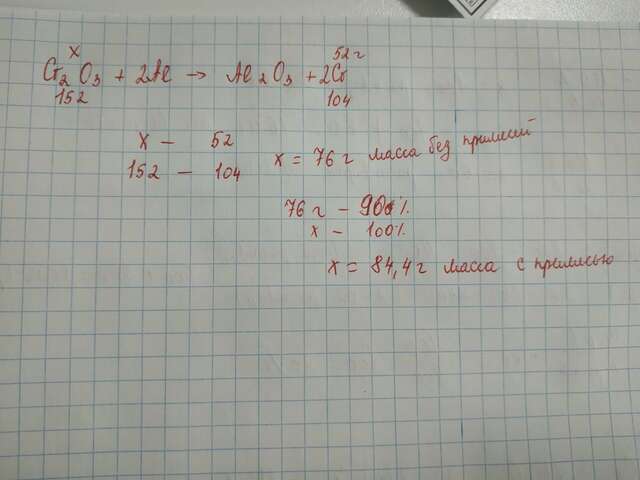 x 52 г
Cr₂O₃ + 2Al → Al₂O₃ + 2Cr
152 104
x – 52
152 – 104 x = 76 г масса без примесей
76 г – 90%
x – 100%
x = 84,4 г масса с примесью